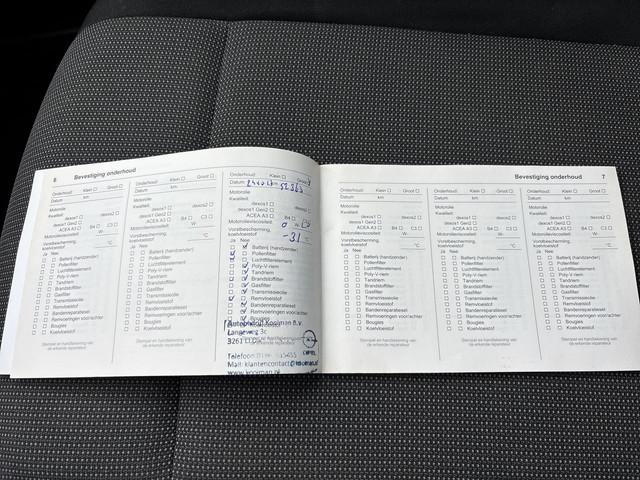 6 Bevestiging onderhoud
Onderhoud: Klein ☐ Groot ☐
Datum km
Motorolie
Kwaliteit: dexos1 ☐ dexos2 ☐
dexos1 Gen2 ☐
ACEA A3 ☐ B4 ☐ C3 ☐
Motorolieviscositeit W-
Vorstbescherming, koelvloeistof °C
Ja Nee
Batterij (handzender)
Pollenfilter
Luchtfilterelement
Poly-V riem
Tandriem
Brandstoffilter
Gasfilter
Transmissieolie
Remvloeistof
Bandenreparatieset
Remvoeringen voor/achter
Bougies
Koelvloeistof
Stempel en handtekening van
de erkende reparateur
Onderhoud: Klein ☐ Groot ☐
Datum km
Motorolie
Kwaliteit: dexos1 ☐ dexos2 ☐
dexos1 Gen2 ☐
ACEA A3 ☐ B4 ☐ C3 ☐
Motorolieviscositeit W-
Vorstbescherming, koelvloeistof °C
Ja Nee
Batterij (handzender)
Pollenfilter
Luchtfilterelement
Poly-V riem
Tandriem
Brandstoffilter
Gasfilter
Transmissieolie
Remvloeistof
Bandenreparatieset
Remvoeringen voor/achter
Bougies
Koelvloeistof
Stempel en handtekening van
de erkende reparateur
Onderhoud: Klein ☐ Groot
Datum km
Motorolie
Kwaliteit:
dexos1 ☐
dexos1 Gen2 ☐
ACEA A3 ☐ B4 ☐
Motorolieviscositeit 0 W-
Vorstbescherming,
koelvloeistof -31
Ja Nee
Batterij (handzender)
Pollenfilter
Luchtfilterelement
Poly-V riem
Tandriem
Brandstoffilter
Gasfilter
Transmissieolie
Remvloeistof
Bandenreparatieset
Remvoeringen voor/achter
Bougies
Kooiman B.V.
Langeweg 3c
3261
Telefoon
Mail: klantencontact
www.kooiman.nl
Bevestiging onderhoud 7
Onderhoud: Klein ☐ Groot ☐
Datum km
Motorolie
Kwaliteit:
dexos1 ☐ dexos2 ☐
dexos1 Gen2 ☐
ACEA A3 ☐ B4 ☐ C3 ☐
Motorolieviscositeit W-
Vorstbescherming,
koelvloeistof °C
Ja Nee
Batterij (handzender)
Pollenfilter
Luchtfilterelement
Poly-V riem
Tandriem
Brandstoffilter
Gasfilter
Transmissieolie
Remvloeistof
Bandenreparatieset
Remvoeringen voor/achter
Bougies
Koelvloeistof
Stempel en handtekening van
de erkende reparateur
Onderhoud: Klein ☐ Groot ☐
Datum km
Motorolie
Kwaliteit:
dexos1 ☐ dexos2 ☐
dexos1 Gen2 ☐
ACEA A3 ☐ B4 ☐ C3 ☐
Motorolieviscositeit W-
Vorstbescherming,
koelvloeistof °C
Ja Nee
Batterij (handzender)
Pollenfilter
Luchtfilterelement
Poly-V riem
Tandriem
Brandstoffilter
Gasfilter
Transmissieolie
Remvloeistof
Bandenreparatieset
Remvoeringen voor/achter
Bougies
Koelvloeistof
Stempel en handtekening van
de erkende reparateur
Onderhoud: Klein ☐ Groot ☐
Datum km
Motorolie
Kwaliteit:
dexos1 ☐ dexos2 ☐
dexos1 Gen2 ☐
ACEA A3 ☐ B4 ☐ C3 ☐
Motorolieviscositeit W-
Vorstbescherming,
koelvloeistof °C
Ja Nee
Batterij (handzender)
Pollenfilter
Luchtfilterelement
Poly-V riem
Tandriem
Brandstoffilter
Gasfilter
Transmissieolie
Remvloeistof
Bandenreparatieset
Remvoeringen voor/achter
Bougies
Koelvloeistof
Stempel en handtekening van
de erkende reparateur